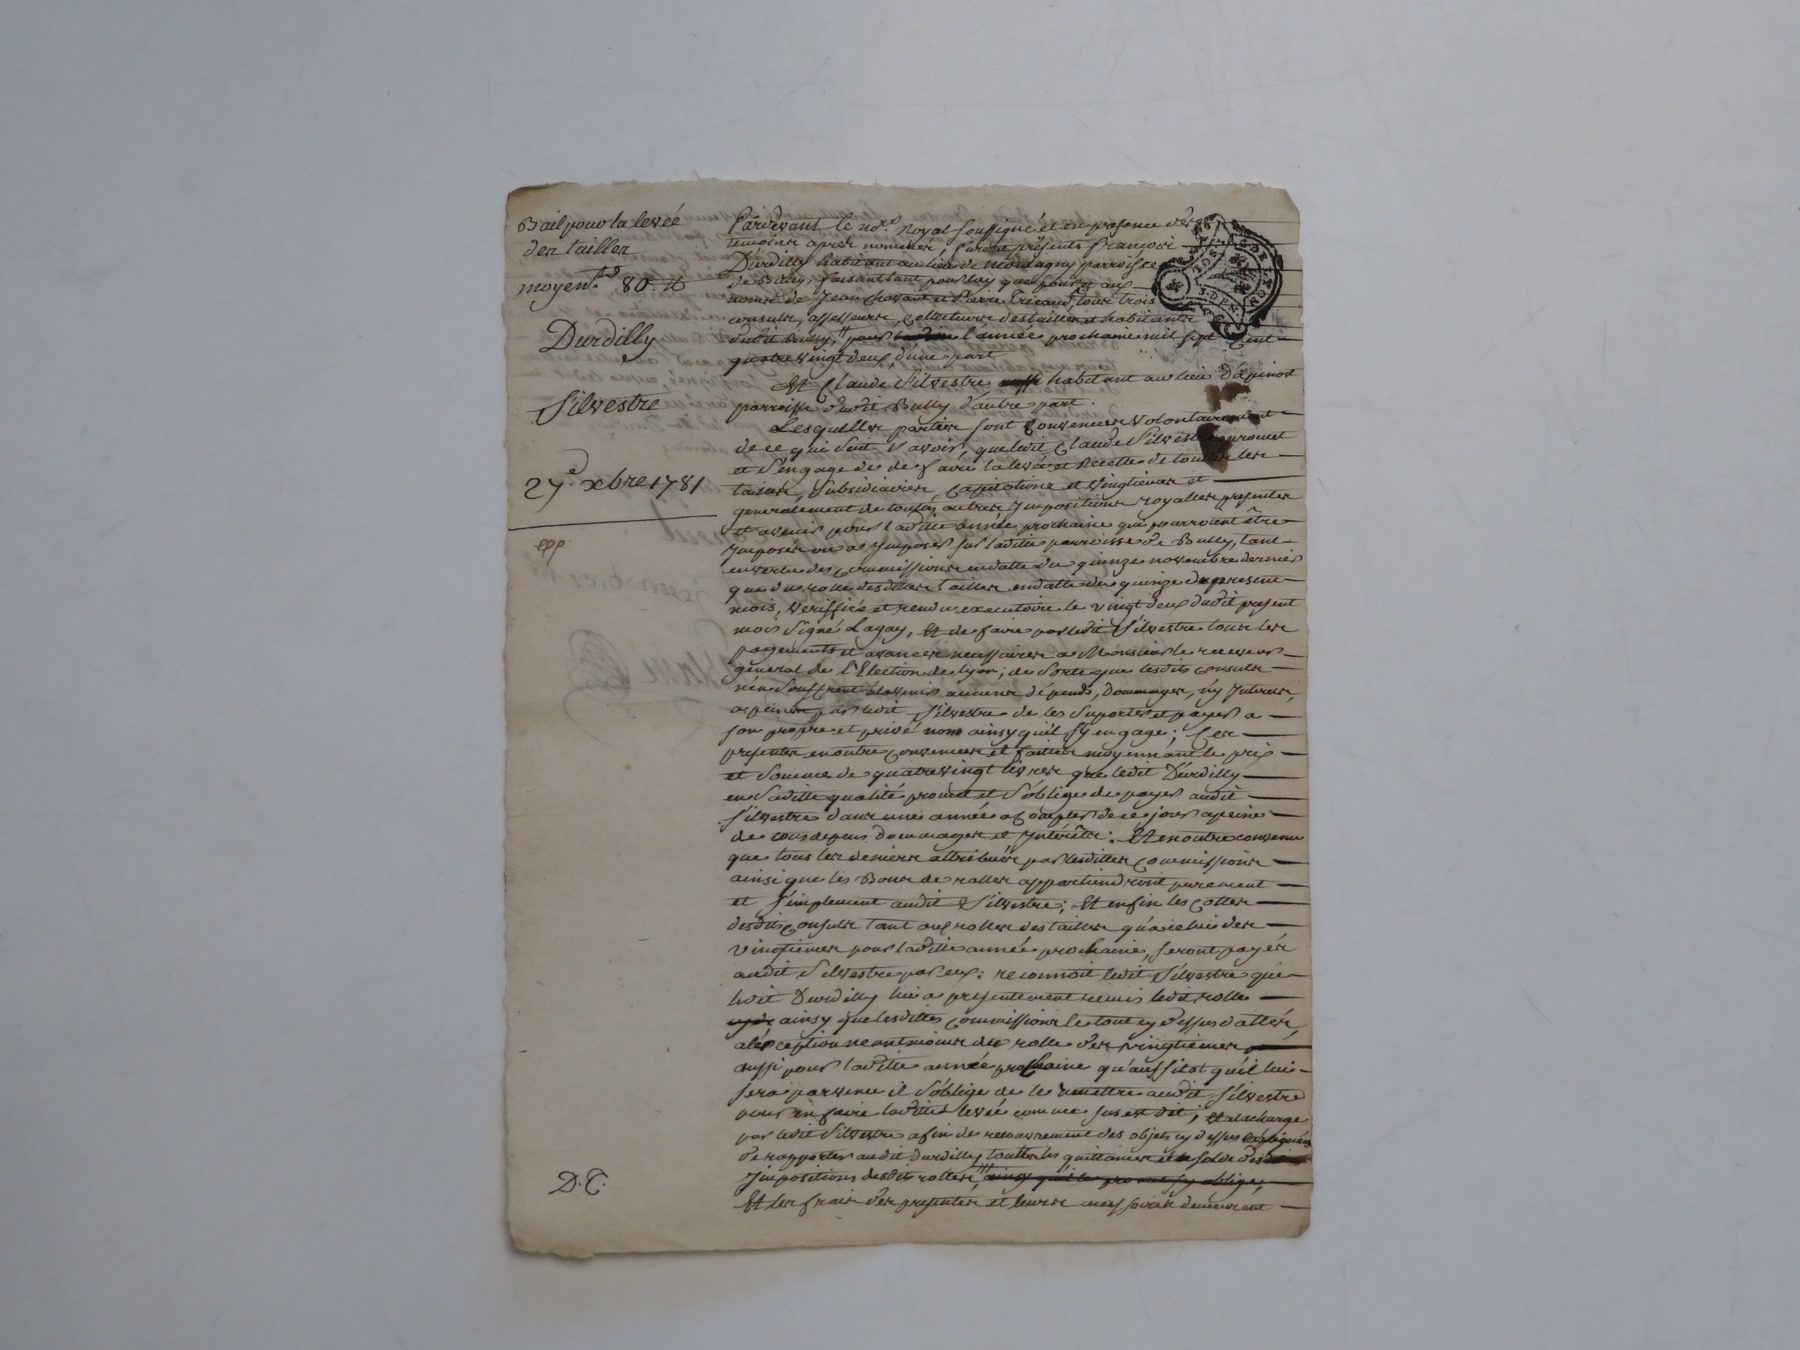 Bail pour la levée
des tailles
moyen.t 80.
Durdilly
Silvestre
27.e xbre 1781
Pardevant le no.re Royal soussigné et en presence des
temoins apres nommés, furent présents françois
Durdilly habitant au lieu de montagny parroisse
de Bully, faisant tant pour luy que pour et aux
noms de Jean Chavant et Pierre Tricaud, tous trois
consuls, assesseurs, collecteurs des tailles et habitants
dudit Bully, pour l'année prochaine mil sept Cent
quatre vingt deux, d'une part
Et Claude Silvestre habitant au lieu Dapinost
parroisse dudit Bully d'autre part.
Lesquelles parties sont convenues volontairement
de ce qui suit Savoir, que ledit Claude Silvestre promet
et s'engage de de faire la levée et Recette de toutes les
tailles, subsidiaires, capitations et vingtiemes et
generalement de toutes autres Impositions royalles presentes
et avenir pour laditte année prochaine qui pourront être
Imposées ou a Imposer sur laditte parroisse de Bully, tant
en vertu des Commissions en datte du quinze novembre dernier
que du rolle desdittes tailles en datte du quinze du present
mois, veriffiée et rendu executoire le vingt deux dudit present
mois signé Lagay, Et de faire par ledit Silvestre tous les
payements et avances necessaires a Monsieur le receveur
general de l'Election de Lyon; de sorte que lesdits consuls
n'en souffrent a l'avenir aucuns dépends, dommages, ny Interets,
a peine par ledit Silvestre de les suporter et payer a
son propre et privé nom ainsy qu'il s'y engage; Ces
presentes en outre convenues et faittes moyennant le prix
et somme de quatrevingt livres que ledit Durdilly
en saditte qualité promet et s'oblige de payer audit
Silvestre dans une année a Compter de ce jour a peine
de tous depens dommages et Interêts: Et en outre convenu
que tous les deniers attribués par lesdittes Commissions
ainsi que les Bons de rolles appartiendront purement
et simplement audit Silvestre; Et enfin les Cottes
desdits Consuls tant aux rolles des tailles qu'a celui des
vingtiemes pour laditte année prochaine, seront payés
audit Silvestre par eux: reconnoit ledit Silvestre que
ledit Durdilly lui a presentement remis ledit rolle
ainsy que lesdittes Commissions le tout cy dessus datté,
a l'exception neantmoins du rolle des vingtiemes
aussi pour laditte année prochaine qu'aussitot qu'il lui
sera parvenu il s'oblige de le remettre audit Silvestre
pour en faire laditte levée comme sus est dit; Et a la charge
par ledit Silvestre afin de recouvrement des objets cy dessus
de rapporter audit Durdilly touttes les quittances de solde des
Impositions desdits rolles, ainsy qu'il le promet s'y oblige,
Et les frais des presentes et leurs accessoires demeurent
D.T.